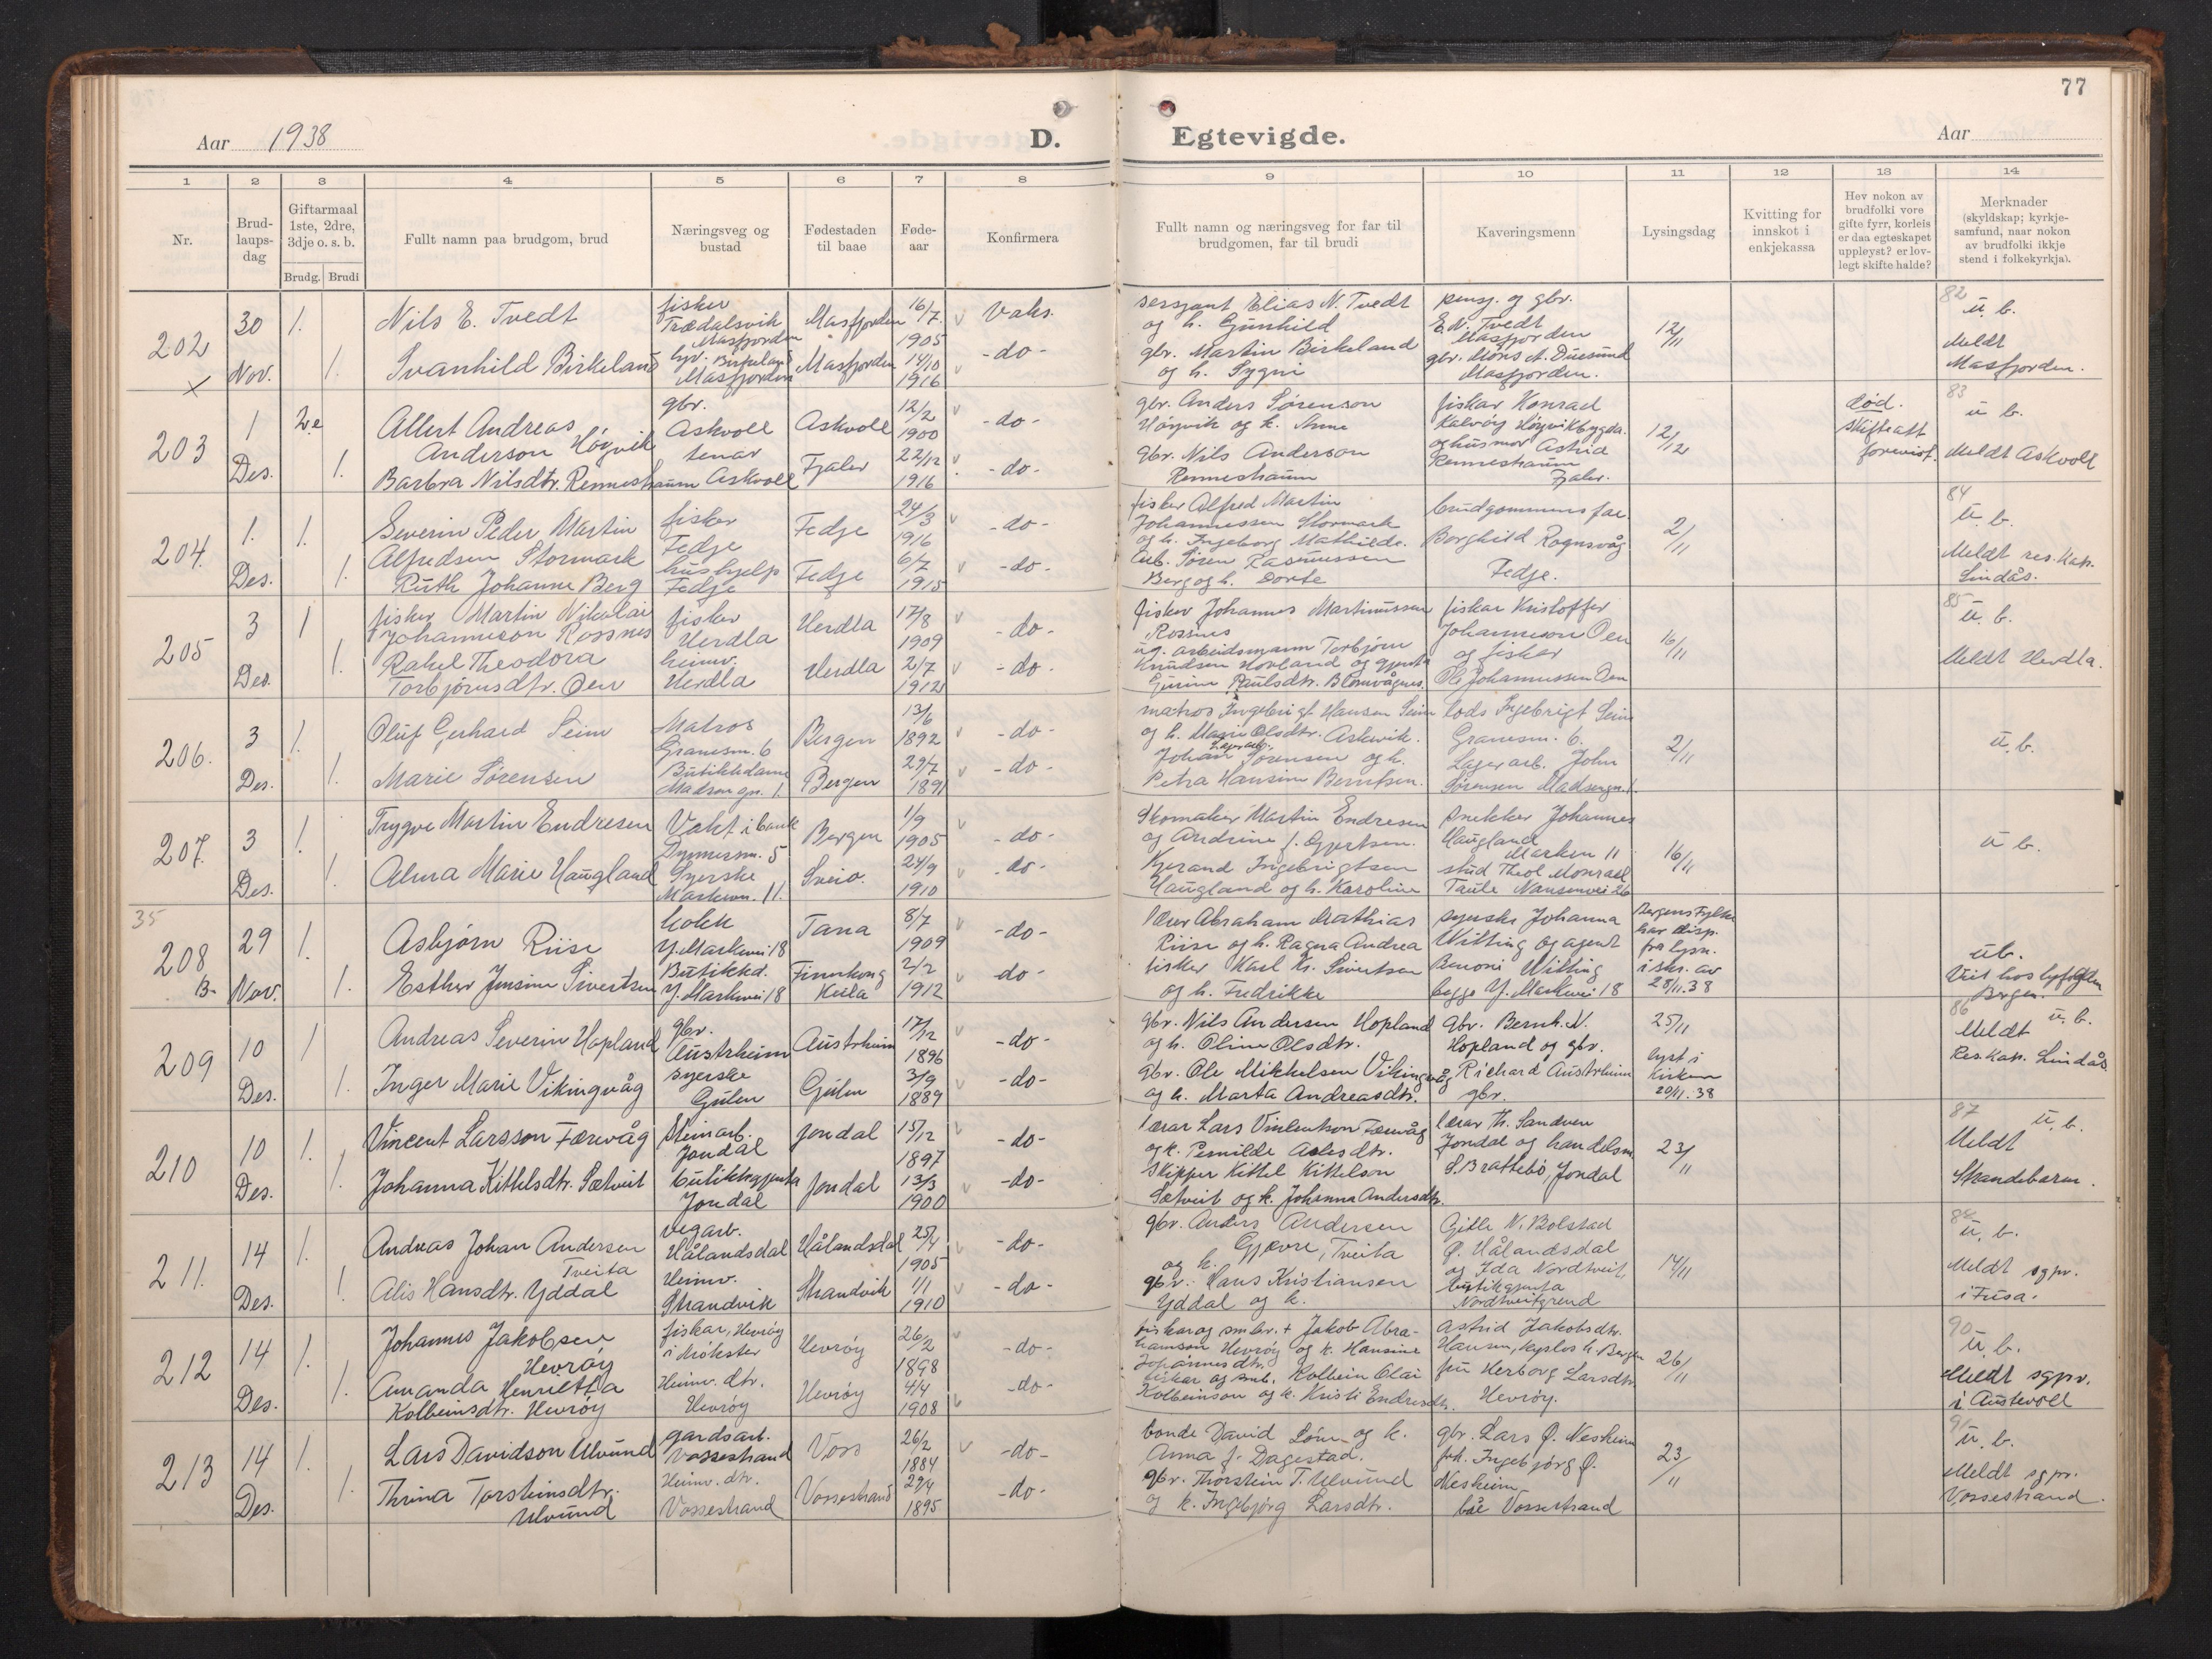 77
Aar 1938
D.
Egtevigde.
Aar
1 2 3 4 5 6 7 8 9 10 11 12 13 14
Nr.
Brud-
laups-
dag
Giftarmaal
1ste, 2dre,
3dje o. s. b.
Brudg. Brudi
Fullt namn paa brudgom, brud
Næringsveg og
bustad
Fødestaden
til baae
Føde-
aar
Konfirmera
Fullt namn og næringsveg for far til
brudgomen, far til brudi
Kaveringsmenn
Lysingsdag
Kvitting for
innskot i
enkjekassa
Hev nokon av
brudfolki vore
gifte fyrr, korleis
er daa egteskapet
uppløyst? er lov-
legt skifte halde?
Merknader
(skyldskap; kyrkje-
samfund, naar nokon
av brudfolki ikkje
stend i folkekyrkja).
202
30
Nov.
1.
1.
Nils E. Tvedt
Svanhild Birkeland
fisker
Trædalsvik
Masfjorden
Birkeland
Masfjorden
Masfjorden
Masfjorden
16/7
1905
14/10
1916
Vaks.
-do-
sersjant Elias N. Tvedt
og h. Gunhild
gbr. Martin Birkeland
og h. Sygni
pensj. og gbr.
E.N. Tvedt
Masfjorden
gbr. Mons A. Duesund
Masfjorden.
12/11
82
u. b.
Meldt
Masfjorden.
203
1
Des.
2e
1.
Albert Andreas
Anderson Høyvik
Barbra Nilsdtr. Renneshaum
gbr.
Askvoll
tenar
Askvoll
Askvoll
Fjaler
12/2
1900
22/12
1916
-do-
-do-
gbr. Anders Sørenson
Høyvik og k. Anne
gbr. Nils Anderson
Renneshaum
fiskar Konrad
Kalvøy Høyvikbygda.
og husmor Astrid
Renneshaum
Fjaler.
12/12
død.
skifteatt
forevist.
83
u b.
Meldt Askvoll
204.
1.
Des.
1.
1.
Severin Peder Martin
Alfredsen Stormark
Ruth Johanne Berg
fisker
Fedje
hushjelp
Fedje
Fedje
Fedje
24/3
1916
6/7
1915
-do-
-do-
fisker Alfred Martin
Johannessen Stormark
og h. Ingeborg Mathilde.
Søren Rasmussen
Berg og h. Dorte
brudgommens far.
Borghild Rognsvåg
Fedje.
2/11
84
u. b.
Meldt res. kap.
Lindås.
205
3
Des.
1
1.
fisker Martin Nikolai
Johanneson Rossnes
Rakel Theodora
Torbjørnsdtr. Oen
fisker
Herdla
heimv.
Herdla
Herdla
Herdla
17/8
1909
2/7
1912
-do-
-do-
fisker Johannes Martinussen
Rossnes
ug. arbeidsmann Torbjørn
Knudsen Hovland og gjenta
Gurine Paulsdtr. Blomvågnes.
fiskar Kristoffer
Johanneson Oen
og fiskar
Ole Johannussen Oen
16/11
85
u. b.
Meldt Herdla.
206.
3
Des.
1.
1.
Oluf Gerhard Seim
Marie Sørensen
Matros
Granesm. 6
Butikkdame
Madsengn. 1.
Bergen
Bergen
13/6
1892
29/7
1891
-do-
-do-
matros Ingebrigt Hansen Seim
og h. Marie Olsdtr. Askvik.
Lagerarb.
Johan Sørensen og h.
Petra Hansine Berntsen.
lods Ingebrigt Seim
Granesm. 6.
Lagerarb. John
Sørensen Madsengn. 1.
2/11
u. b.
207.
3
Des.
1.
1.
Trygve Martin Endresen
Alma Marie Haugland
Vakt i bank
5
Syerske
Markevn. 11.
Bergen
Sveio.
1/9
1905
24/9
1910
-do-
-do-
Skomaker Martin Endresen
og Andrine f. Gjertsen.
Kjerand Ingebrigtsen
Haugland og h. Karoline
snekker Johannes
Haugland
Marken 11
stud Theol Monrad
Taule Nansenvei 26
16/11
u b.
35
208
B-
29
Nov.
1.
1.
Asbjørn Riise
Esther Jensine Sivertsen
kokk
Y. Markevei 18
Butikkd.
Y. Markevei 18
Tana
Finnkong
Keila
8/7
1909
2/2
1912
-do-
do-
lærer Abraham Mathias
Riise og h. Ragna Andrea
fisker Karl Kr. Sivertsen
og h. Fredrikke
syerske Johanna
Witting og agent
Benoni Witting
begge Y. Markevei 18
Bergens Fylke
har disp.
fra lysn.
i skr. av
28/11.38
u b.
Viet hos byfogden
Bergen.
209
10
Des.
1
1.
Andreas Severin Hopland
Inger Marie Vikingvåg
gbr.
Austrheim
syerske
Gulen
Austrheim
Gulen
17/12
1896
3/9
1889
-do-
-do-
gbr. Nils Andersen Hopland
og h. Oline Olsdtr.
gbr. Ole Mikkelsen Vikingvåg
og h. Marta Andreasdtr.
gbr. Bernh. N.
Hopland og gbr.
Richard Austrheim
gbr.
25/11
lyst i
Kirken
20/11.38
86
u. b.
Meldt
Res. Kap. Lindås
210
10
Des.
1.
1.
Vincent Larsson Færevåg
Johanna Kittelsdtr. Sætveit
steinarb.
Jondal
butikkgjenta
Jondal
Jondal
Jondal
15/12
1897
13/3
1900
-do-
-do-
lærar Lars Vinlentson Færevåg
og k. Pernilde Aslesdtr.
Skipper Kittel Kittelson
Sætveit og k. Johanna Andersdtr.
lærar Th. Sandven
Jondal og handelsm.
S. Brattebø, Jondal
23/11
87
u. b.
Meldt
Strandebarm.
211.
14
Des.
1.
1.
Andreas Johan Andersen
Tveita
Alis Hansdtr. Yddal
vegarb.
Hålandsdal
Heimv.
Strandvik
Hålandsdal
Strandvik
25/4
1905
1/1
1910
-do-
-do-
gbr. Anders Andersen
Gjævre, Tveita
og k.
gbr. Hans Kristiansen
Yddal og k.
Gitle N. Bolstad
Ø. Hålandsdal
og Ida Nordtveit,
butikgjenta
Nordtveitgrend
14/11
u. b.
Meldt sgpr.
i Fusa.
212
14
Des.
1.
1.
Johannes Jakobsen
Hevrøy
Amanda Henrietta
Kolbeinsdtr. Hevrøy
fiskar, Hevrøy
i Møkster
Heimv. dtr.
Hevrøy
Hevrøy
Hevrøy
26/2
1898
4/4
1908
-do-
-do-
fiskar og smbr. + Jakob Abra-
hamson Hevrøy og k. Hansine
Johannesdtr.
fiskar og smb. Kolbein Olai
Kolbeinson og k. Kristi Endresdtr.
Astrid Jakobsdtr.
Hansen, Bergen
fru Herborg Larsdtr.
Hevrøy.
26/11
90
u. b.
Meldt sgpr.
i Austevoll
213
14
Des.
1.
1.
Lars Davidson Ulvund
Thrina Torsteinsdtr.
Ulvund
gardsarb.
Vossestrand
Heimv. dtr.
Vossestrand
Voss
Vossestrand
26/2
1884
29/4
1895
-do-
-do-
bonde David Lønn og k.
Anna f. Dagestad.
gbr. Thorstein T. Ulvund
og k. Ingebjørg Larsdtr.
gbr. Lars Ø. Nesheim
frk. Ingebjørg Ø.
Nesheim
båe Vossestrand
23/11
91
u. b.
Meldt sgpr.
Vossestrand.